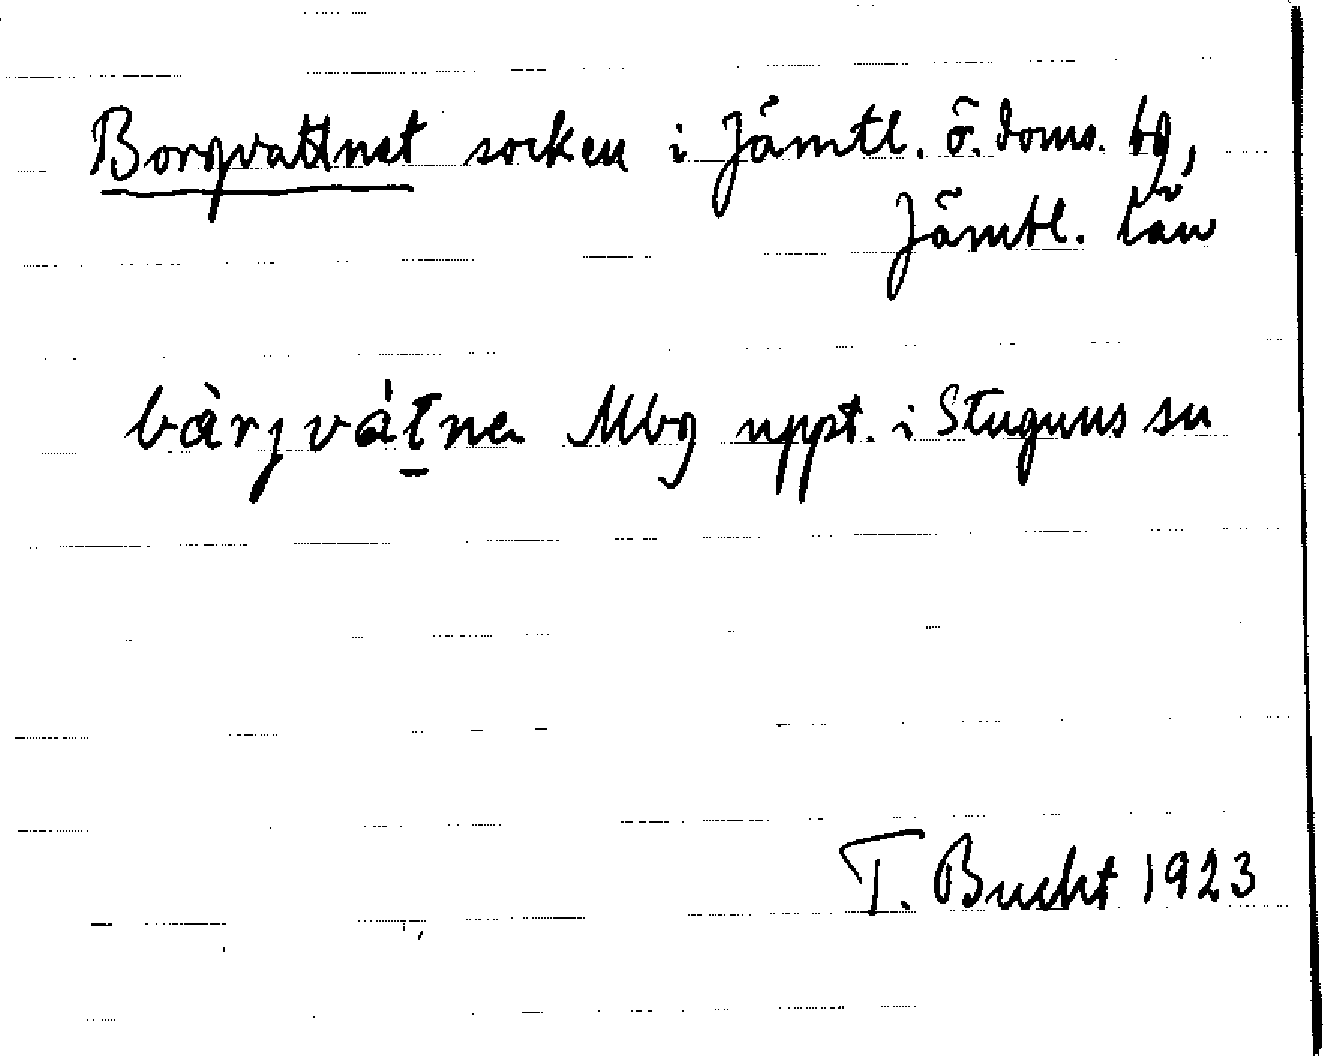 Borgvattnet socken i Jämtl. ö. doms. tg,
Jämtl. län
bàrjvát̠ne Mbg uppt. i Stuguns sn
T. Bucht 1923